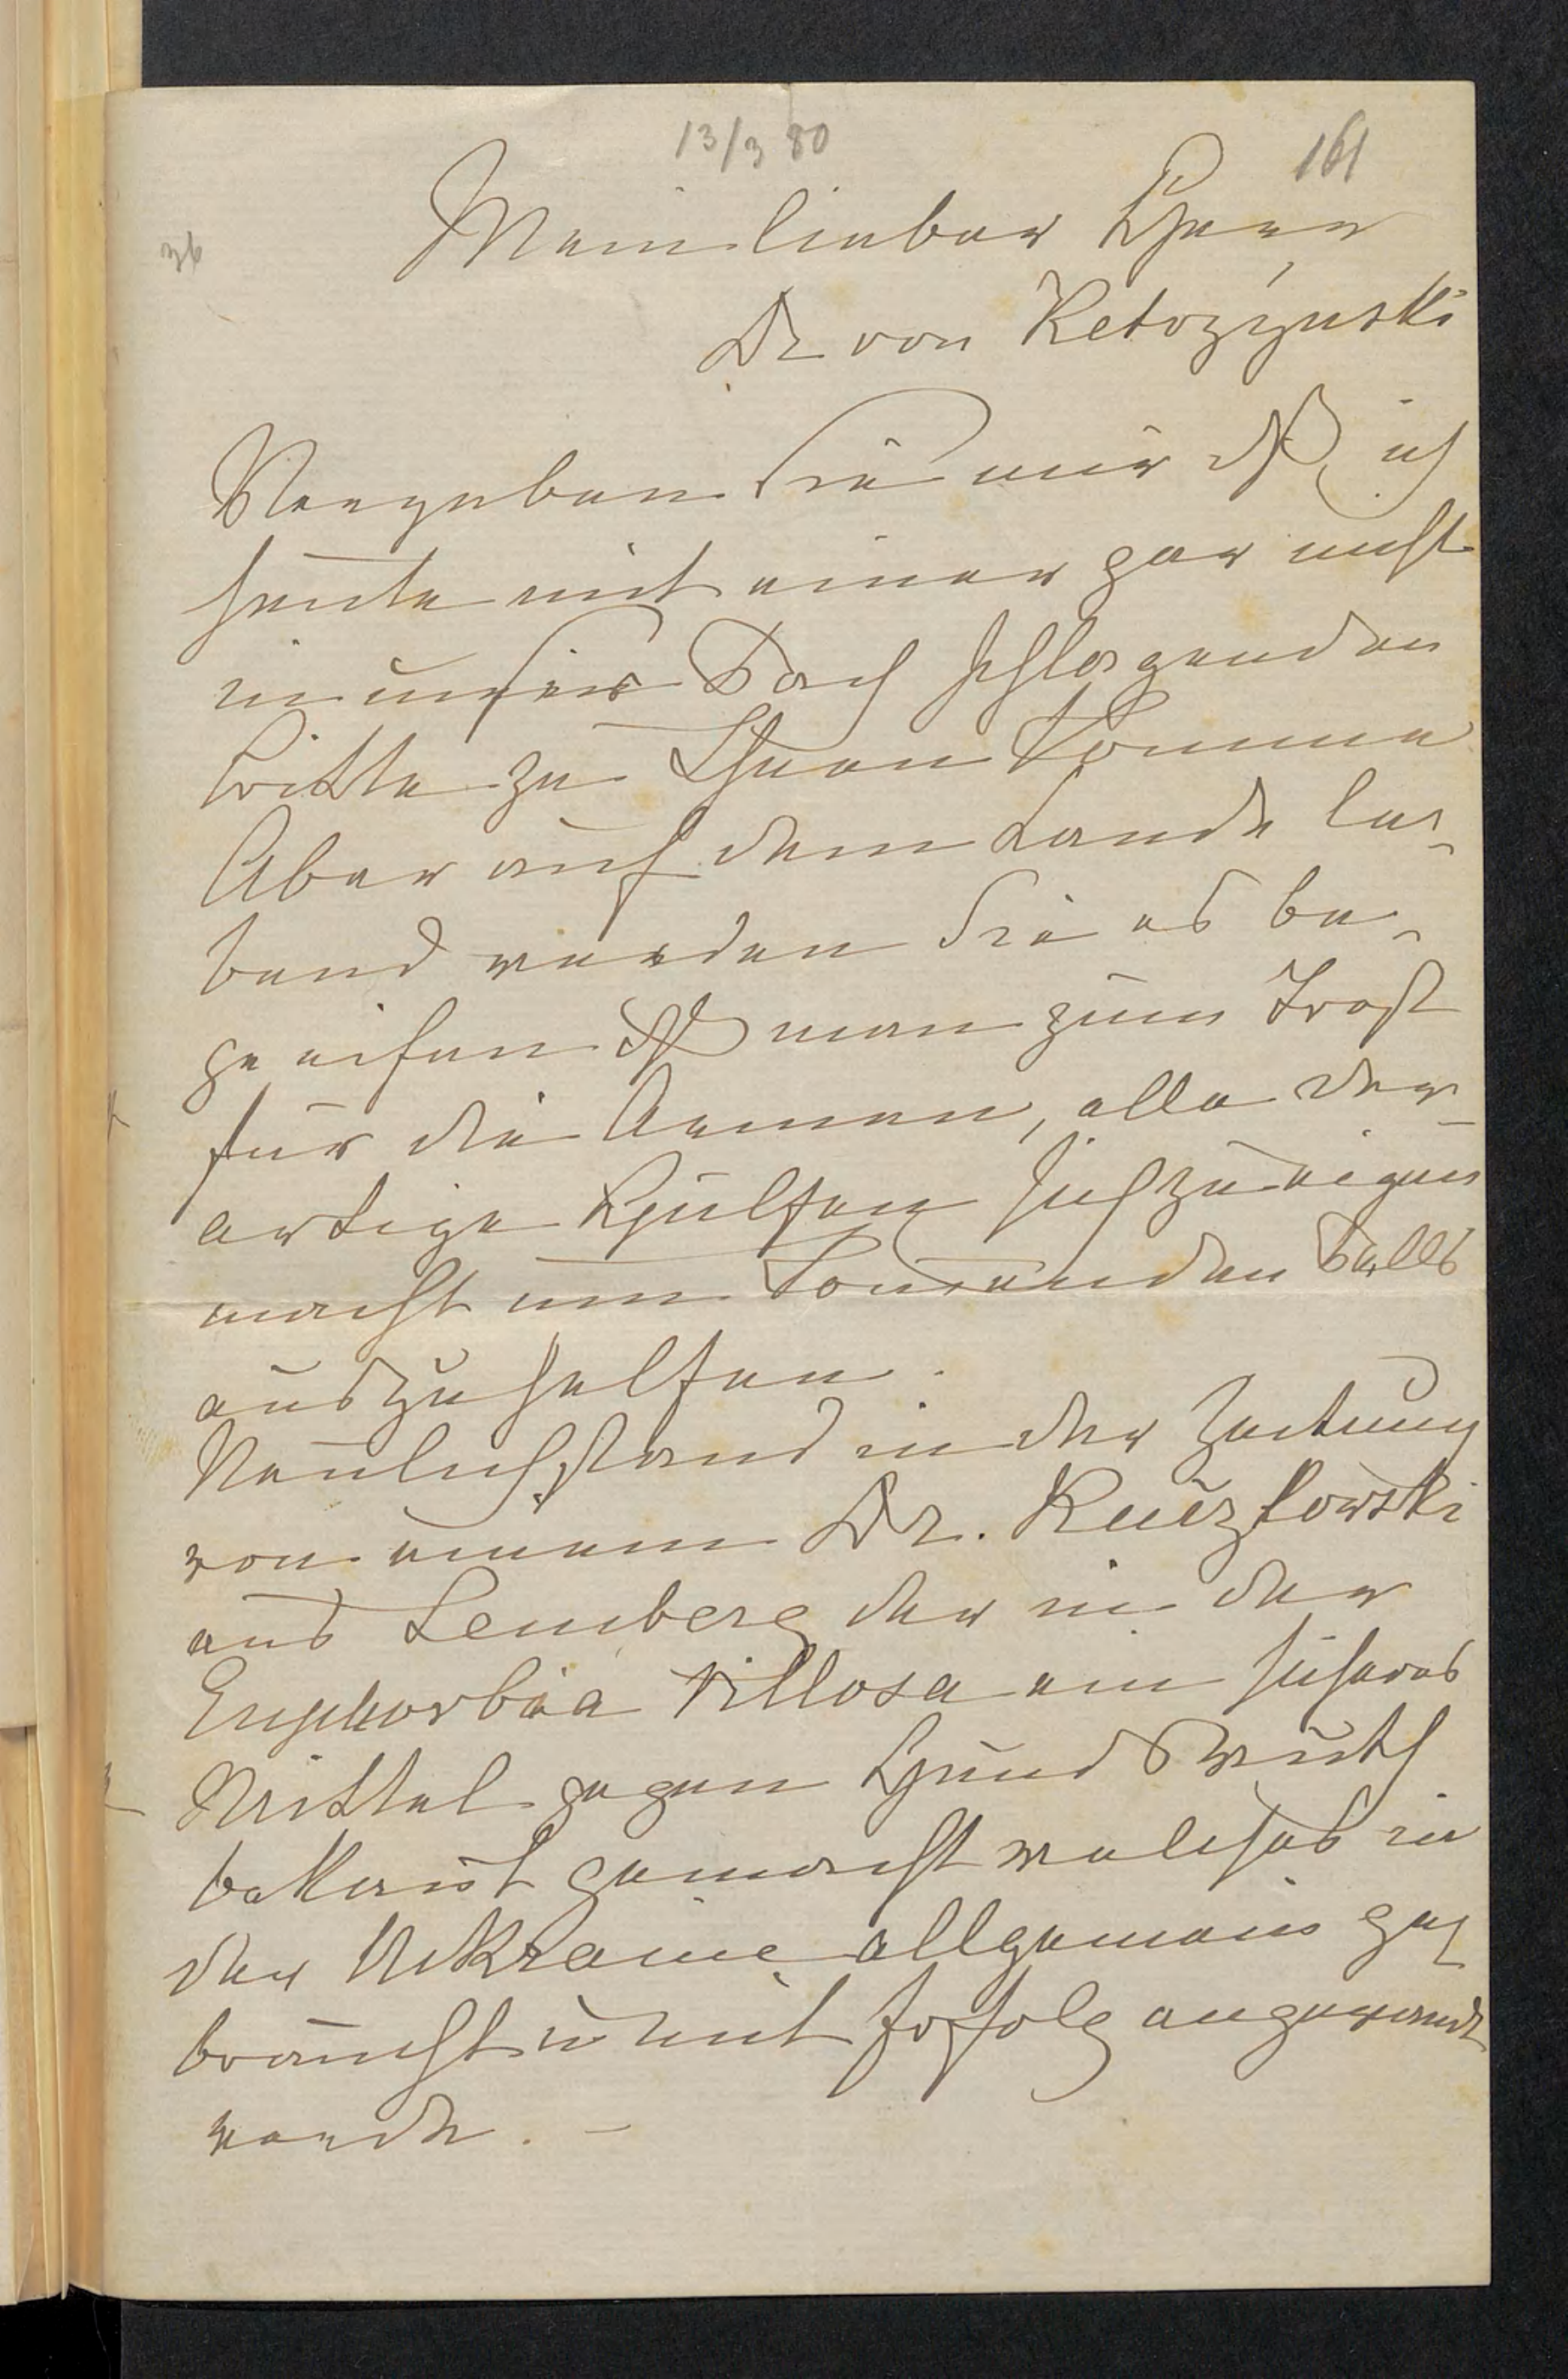 13/3 80
161
36
Mein lieber Herr
Dr von Ketozynski
Vergeben Sie mir dß ich
heute mit einer gar nicht
in unser Fach schlagenden
Bitte zu Ihnen komme
Aber auf dem Lande le-
bend werden Sie es be-
greifen dß man zum Trost
für die Armen, alle der-
artige Hülfen sich zu eigen
macht um kommenden Falls
auszuhelfen.
Neulich stand in der Zeitung
von einem Dr. Kuczkowski
aus Lemberg der in der
Euphorbia villosa ein sicheres
Mittel gegen Hundswuth
bekannt gemacht welches in
der Ukraine allgemein ge-
braucht u mit Erfolg angewandt
werde. –